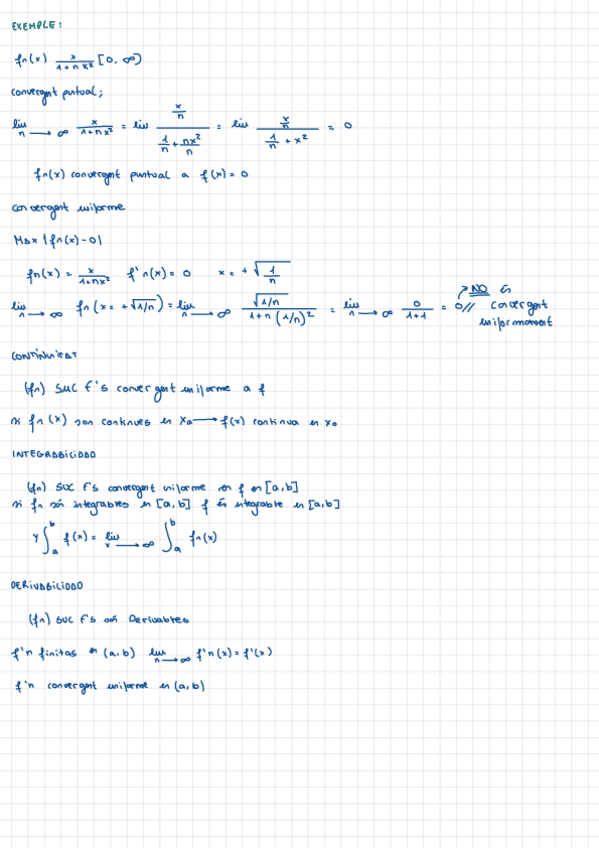 EXEMPLE:
fn(x) x/(1+nx²) [0, ∞)
convergent puntual;
lim n→∞ x/(1+nx²) = lim (x/n)/(1/n + nx²/n) = lim (x/n)/(1/n + x²) = 0
fn(x) convergent puntual a f(x)=0
convergent uniforme
Max |fn(x)-0|
fn(x) = x/(1+nx²) f'n(x)=0 x=+√(1/n)
lim n→∞ fn(x=+√1/n) = lim n→∞ √1/n/(1+n(1/n)²) = lim n→∞ 0/(1+1) = 0// NO és convergent uniformement
CONTINUITAT
(fn) suc f's convergent uniforme a f
si fn(x) son continues en x₀ → f(x) continua en x₀
INTEGRABILIDAD
(fn) suc f's convergent uniforme en f en [a,b]
si fn són integrables en [a,b] f és integrable en [a,b]
y ∫ₐᵇ f(x) = lim x→∞ ∫ₐᵇ fn(x)
DERIVABILIDAD
(fn) suc f's són Derivables
f'n finitas en (a,b) lim n→∞ f'n(x)=f'(x)
f'n convergent uniforme en (a,b)